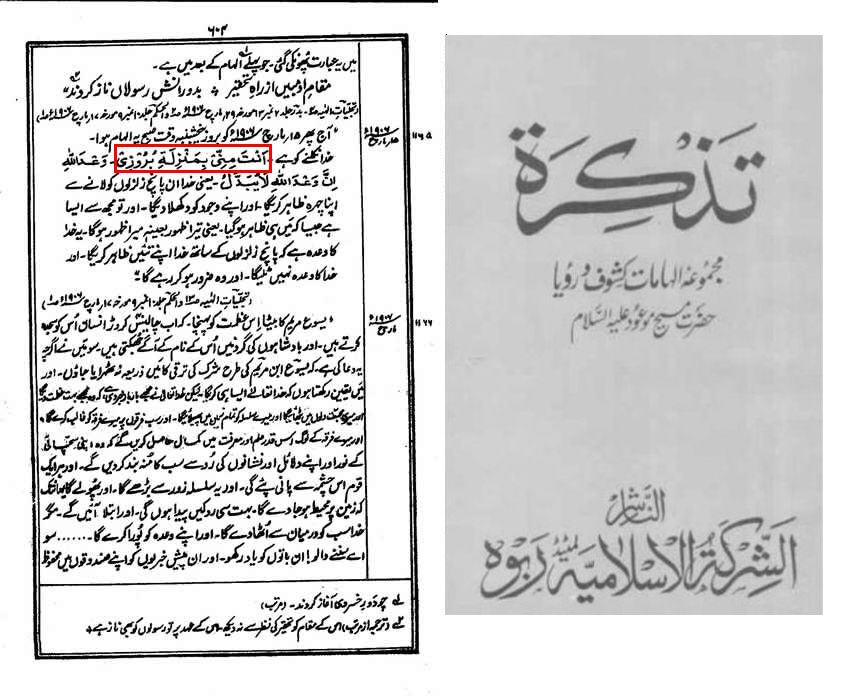 ۶۰۴
میں یہ عبارت پھونکی گئی۔ جو پہلے الہام کے بعد میں ہے۔
مقامِ او مبیں از راہِ تحقیر * بدورانش رسولاں ناز کردند
۱۱۶۵
"آج پھر ۱۵ مارچ ۱۹۰۶ء کو بروز پنجشنبہ وقت صبح یہ الہام ہوا۔
خدا نکلنے کو ہے۔ اَنْتَ مِنِّیْ بِمَنْزِلَۃِ بُرُوْزِیْ۔ وَعْدَ اللّٰہِ
اِنَّ وَعْدَ اللّٰہِ لَا یُبَدَّلُ۔ یعنی خدا ان پانچ زلزلوں کو لانے سے
اپنا چہرہ ظاہر کریگا۔ اور اپنے وجود کو دکھلا دیگا۔ اور تو مجھ سے ایسا
ہے جیسا کہ میں ہی ظاہر ہو گیا۔ یعنی تیرا ظہور بعینہٖ میرا ظہور ہوگا۔ یہ خدا
کا وعدہ ہے کہ پانچ زلزلوں کے ساتھ خدا اپنے تئیں ظاہر کریگا۔ اور
خدا کا وعدہ نہیں ٹلیگا۔ اور وہ ضرور ہو کر رہے گا۔"
۱۱۶۶
"یسوع مریم کا بیٹا اس عظمت کو پہنچا۔ کہ اب چالیس کروڑ انسان اُس کو سجدہ
کرتے ہیں۔ اور بادشاہوں کی گردنیں اُس کے نام کے آگے جھکتی ہیں۔ سو میں نے اگرچہ
یہ دعا کی ہے۔ کہ یسوع ابن مریم کی طرح شرک کی ترقی کا میں ذریعہ نہ ٹھہرایا جاؤں۔ اور
میں یقین رکھتا ہوں کہ خدا تعالیٰ ایسا ہی کریگا۔ لیکن خدا تعالیٰ نے مجھے بار بار خبر دی ہے کہ وہ مجھے بہت عظمت دیگا
اور میری محبت دلوں میں بٹھائیگا اور میرے سلسلہ کو تمام زمین میں پھیلائیگا۔ اور سب فرقوں پر میرے فرقہ کو غالب کرے گا۔
اور میرے فرقہ کے لوگ اس قدر علم اور معرفت میں کمال حاصل کریں گے کہ وہ اپنی سچائی
کے نور اور اپنے دلائل اور نشانوں کی رُو سے سب کا مُنہ بند کر دیں گے۔ اور ہر ایک
قوم اس چشمہ سے پانی پئے گی۔ اور یہ سلسلہ زور سے بڑھے گا۔ اور پھولے گا یہانتک
کہ زمین پر محیط ہو جاوے گا۔ بہت سی روکیں پیدا ہوں گی۔ اور ابتلا آئیں گے۔ مگر
خدا سب کو درمیان سے اُٹھا دے گا۔ اور اپنے وعدہ کو پُورا کرے گا۔۔۔۔۔۔۔ سو
اے سننے والو! ان باتوں کو یاد رکھو۔ اور ان پیش خبریوں کو اپنے صندوقوں میں محفوظ
لہ چو دَورِ خسروی آغاز کردند۔ (مرتب)
لہ (ترجمہ از مرتب) اس کے مقام کو تحقیر کی نظر سے نہ دیکھ۔ اس کے عہد پر تو رسولوں کو بھی ناز ہے۔
تذکرۃ
مجموعہ الہامات کشوف و رؤیا
حضرت مسیح موعود علیہ السلام
الناشر
الشرکۃ الاسلامیہ لمیٹڈ ربوہ